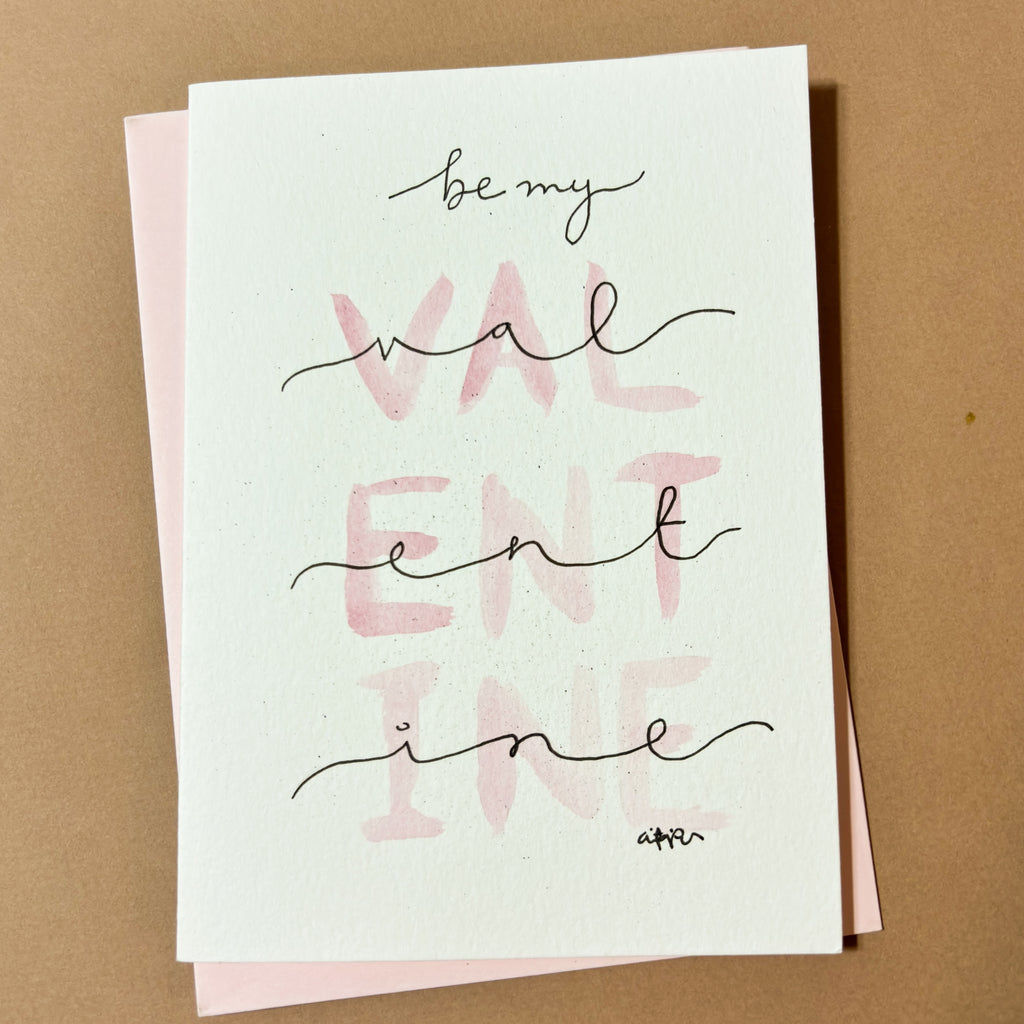 be my
VAL
val
ENT
ent
INE
ine